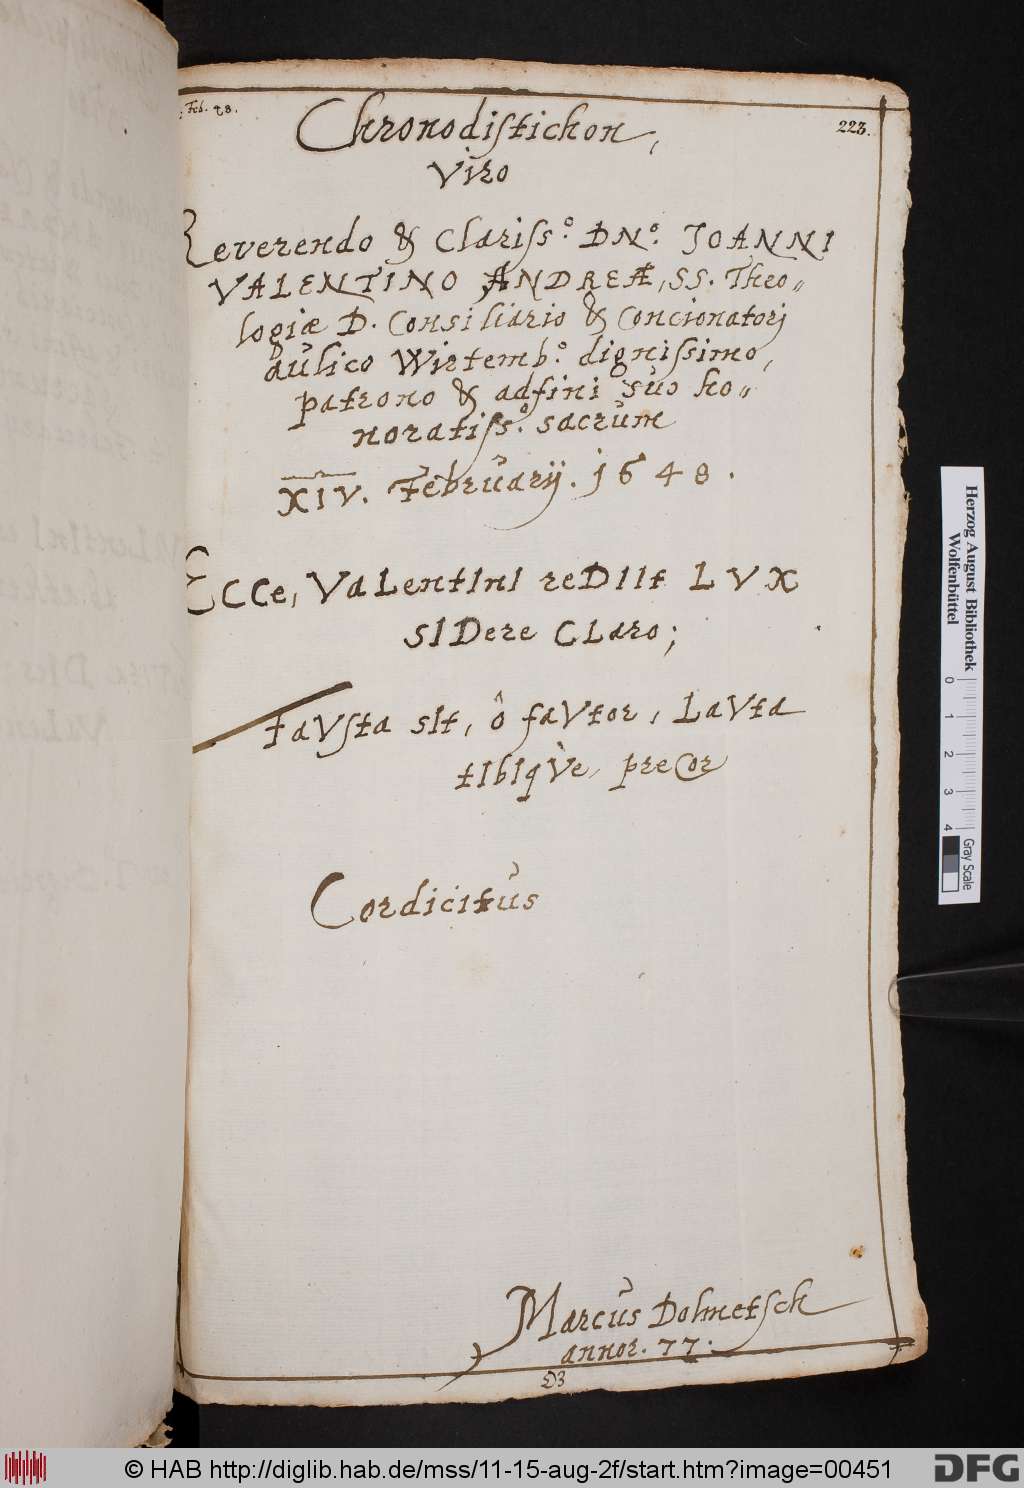 Feb. 48.
223.
Chronodistichon,
Viro
Reverendo & Clariss.º DNº. JOANNI
VALENTINO ANDREÆ, SS. Theo„
logiæ D. Consiliario & Concionatorj
aulico Wirtemb.º dignissimo,
patrono & adfini suo ho„
noratiss.º sacrum
XIV. Februarij. 1648.
ECCe, VaLentInI reDIIt LVX
sIDere CLaro;
faVsta sIt, ô faVtor, LaVta
tIbIqVe, preCor
Cordicitus
Marcus Dolmetsch
annor. 77.
Herzog August Bibliothek
Wolfenbüttel
0 1 2 3 4
Gray Scale
© HAB http://diglib.hab.de/mss/11-15-aug-2f/start.htm?image=00451
DFG